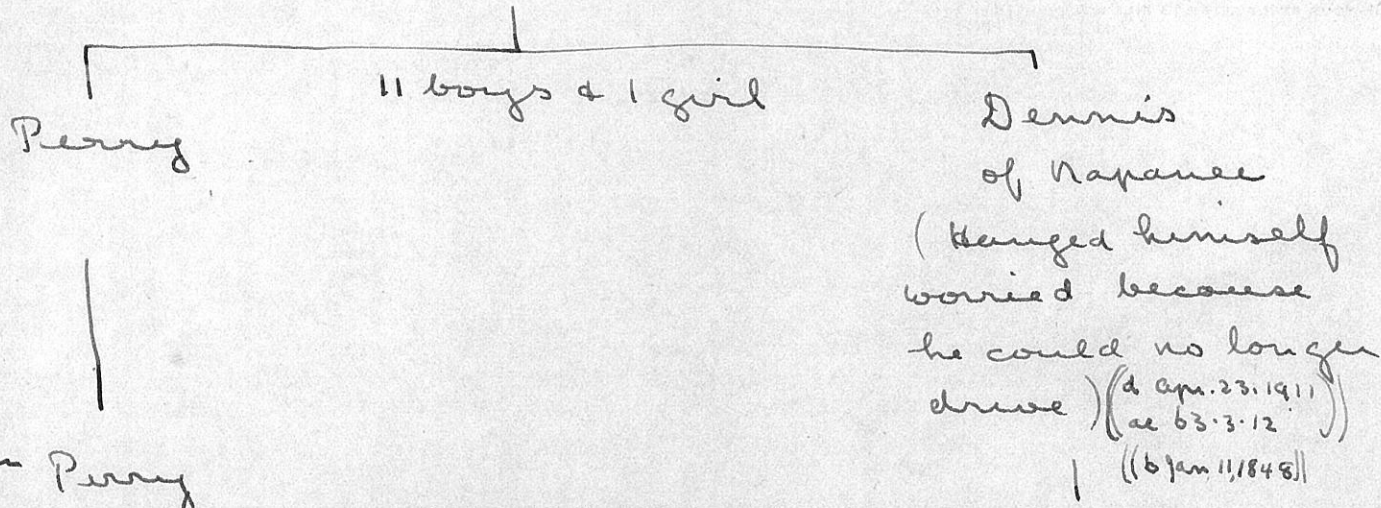 11 boys & 1 girl
Perry
Dennis
of Napanee
(Hanged himself
worried because
he could no longer
drive) ((d Apr. 23. 1911
ae 63.3.12))
((b Jan 11, 1848))
Perry